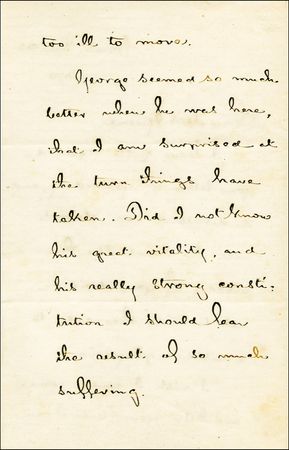 too ill to move.
George seemed so much
better when he was here,
that I am surprised at
the turn things have
taken. Did I not know
his great vitality, and
his really strong consti-
tution I should fear
the result of so much
suffering.